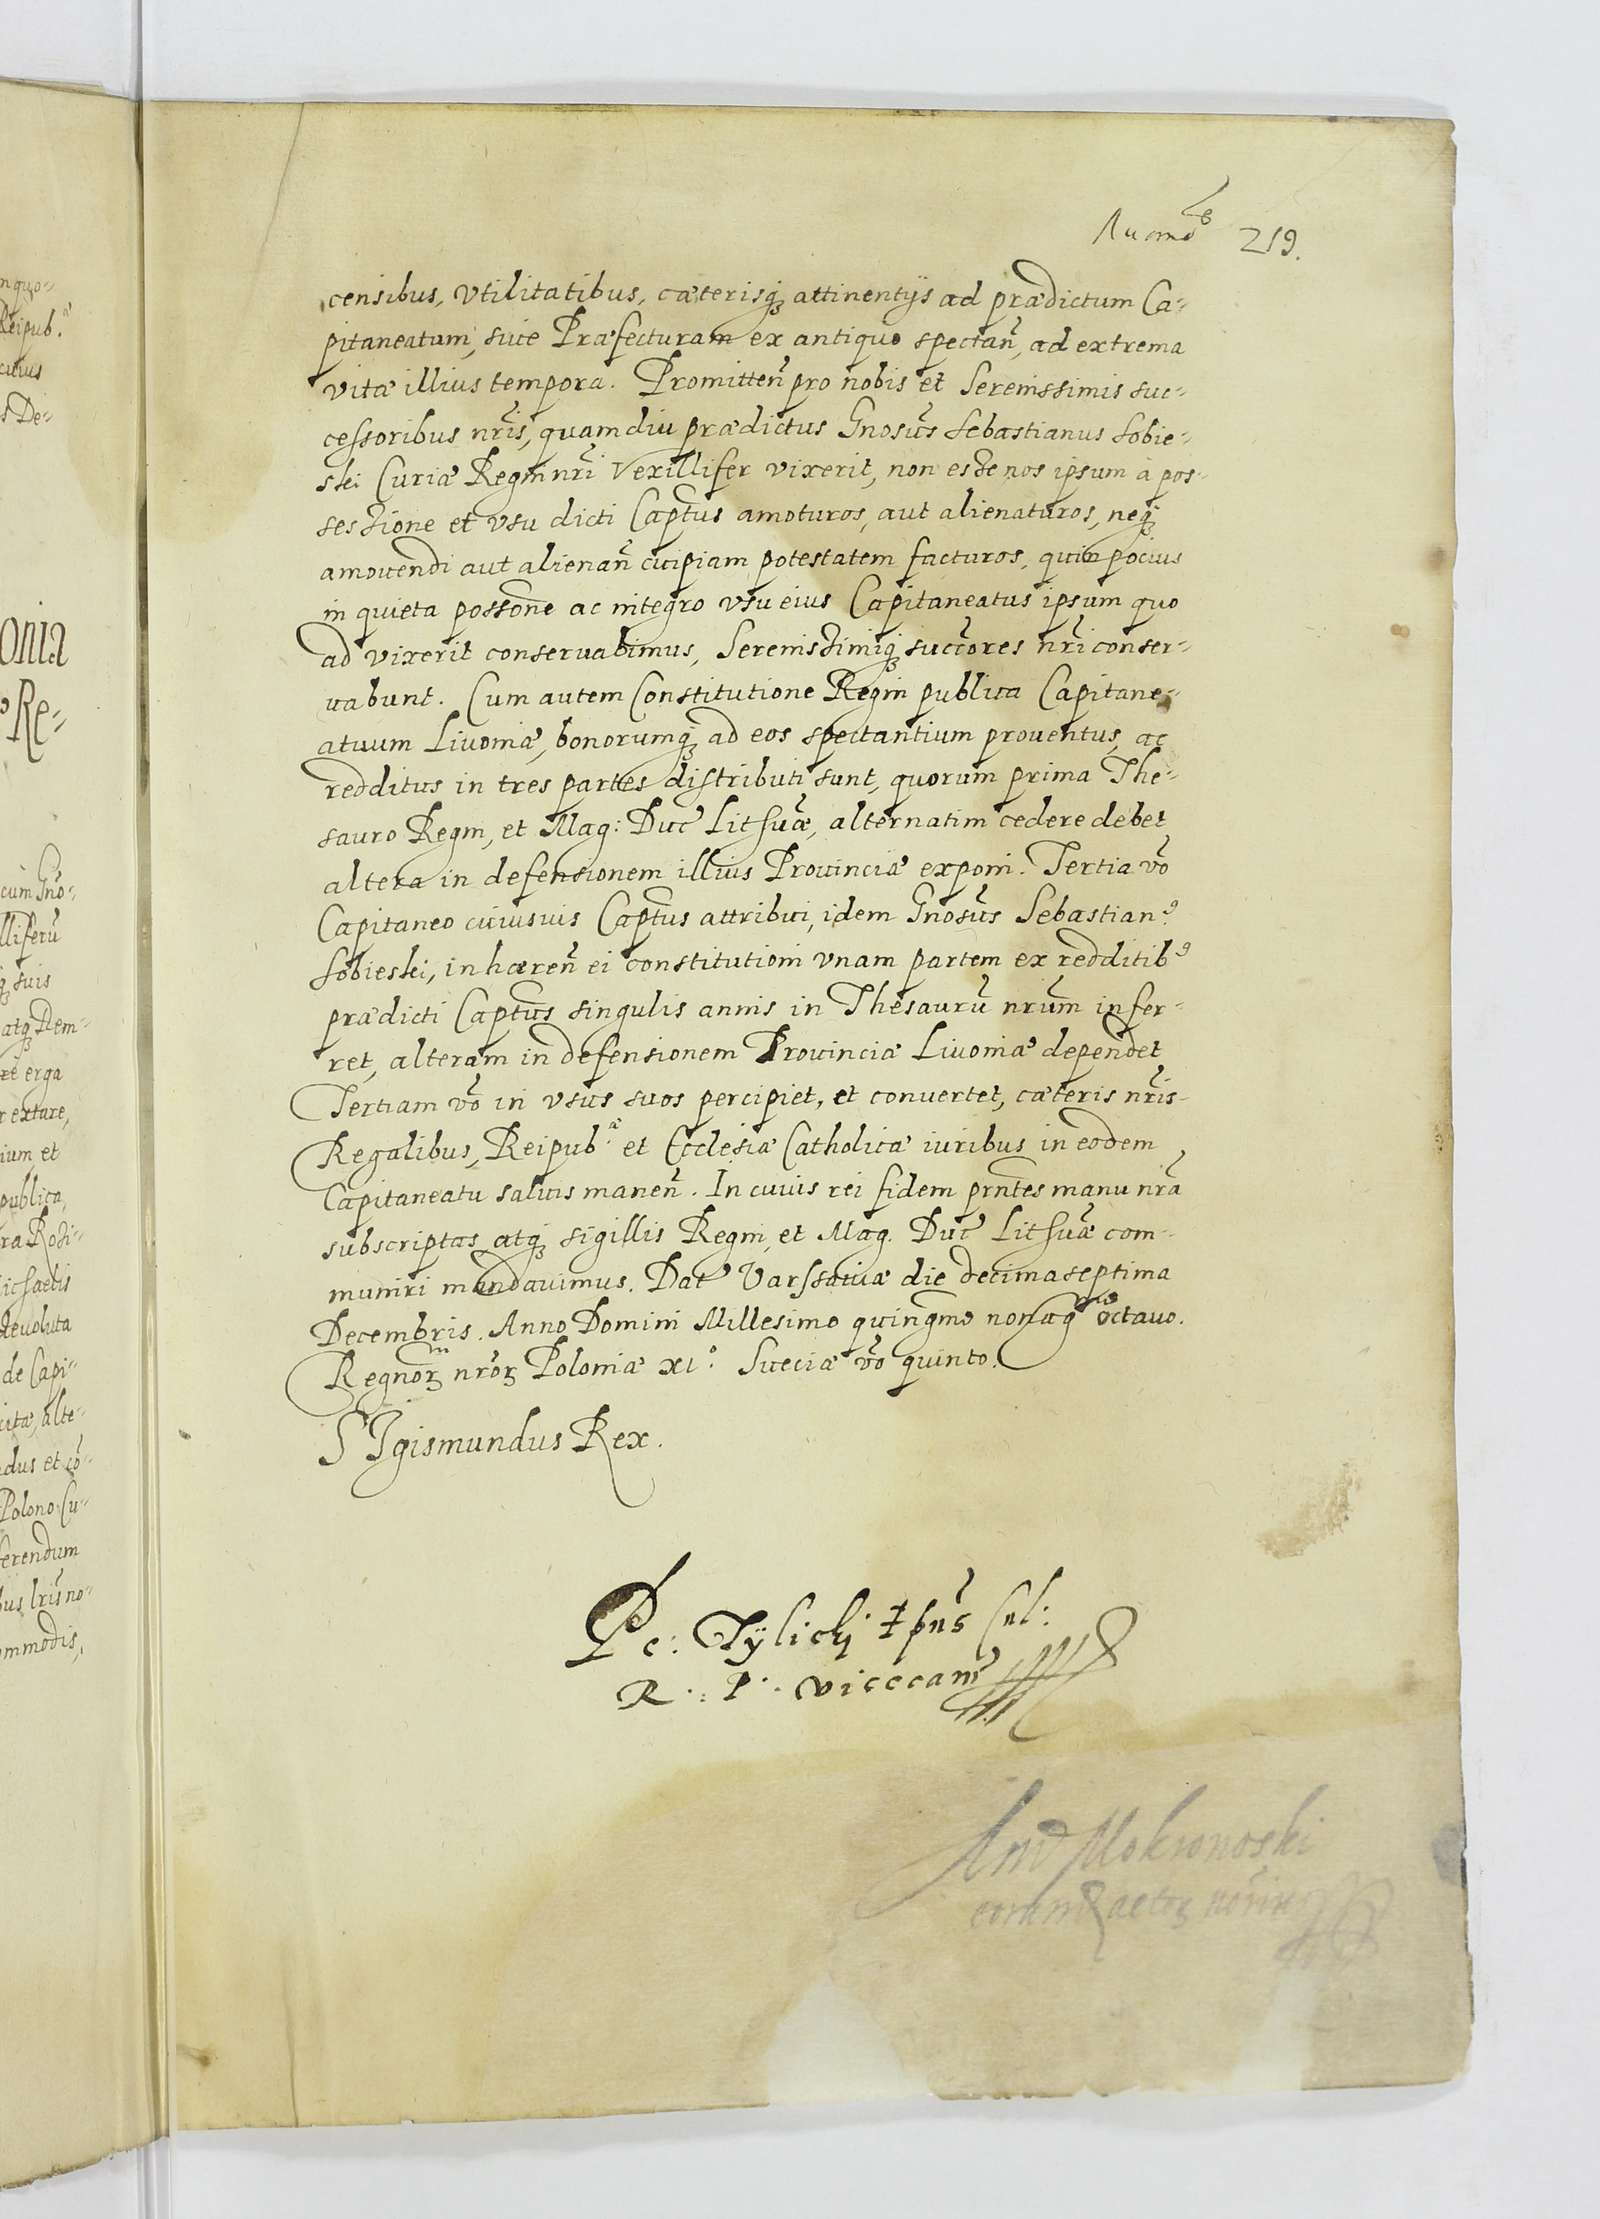 219.
censibus, vtilitatibus, cæterisq; attinentijs ad prædictum Ca-
pitaneatum, siue Præfecturam ex antiquo spectan̄, ad extrema
vitæ illius tempora. Promitten̄ pro nobis et Serenissimis suc-
cessoribus nr̄is, quamdiu prædictus Gnosūs Sebastianus Sobie-
ski Curiæ Regni nr̄i Vexillifer vixerit, non esse nos ipsum à pos-
sessione et vsu dicti Captūs amoturos, aut alienaturos, neq;
amouendi aut alienan̄ cuipiam potestatem facturos, quin pocius
in quieta possōne ac integro vsu eius Capitaneatus ipsum quo
ad vixerit conseruabimus, Serenissimiq; succōres nr̄i conser-
uabunt. Cum autem Constitutione Regni publica Capitane-
atuum Liuoniæ, bonorumq; ad eos spectantium prouentus, ac
redditus in tres partes distributi sunt, quorum prima The-
sauro Regni, et Mag: Duc̄ Lithuāæ, alternatim cedere debet
altera in defensionem illius Prouinciæ exponi. Tertia vō
Capitaneo cuiusuis Captūs attribui, idem Gnosūs Sebastian⁹
Sobieski, inhæren̄ ei constitutioni vnam partem ex redditib⁹
prædicti Captūs singulis annis in Thesaurū nrūm infer-
ret, alteram in defensionem Prouinciæ Liuoniæ dependet
Tertiam vō in vsus suos percipiet, et conuertet, cæteris nr̄is
Regalibus, Reipub.ᵃᵉ et Ecclesiæ Catholicæ iuribus in eodem
Capitaneatu saluis manen̄. In cuius rei fidem prn̄tes manu nrā
subscriptas atq; sigillis Regni, et Mag. Duc̄ Lithuāæ com-
muniri mandauimus. Dat̄ Varssauiæ die decima septima
Decembris. Anno Domini Millesimo quingm̄o nonagᵐᵒ octauo.
Regnorꝫ nrōrꝫ Poloniæ xi.º Sueciæ vō quinto.
SIgismundus Rex.
Pe: Tÿlicki Epūs Cul:
R: P: vicecan̄
And Mokronoski